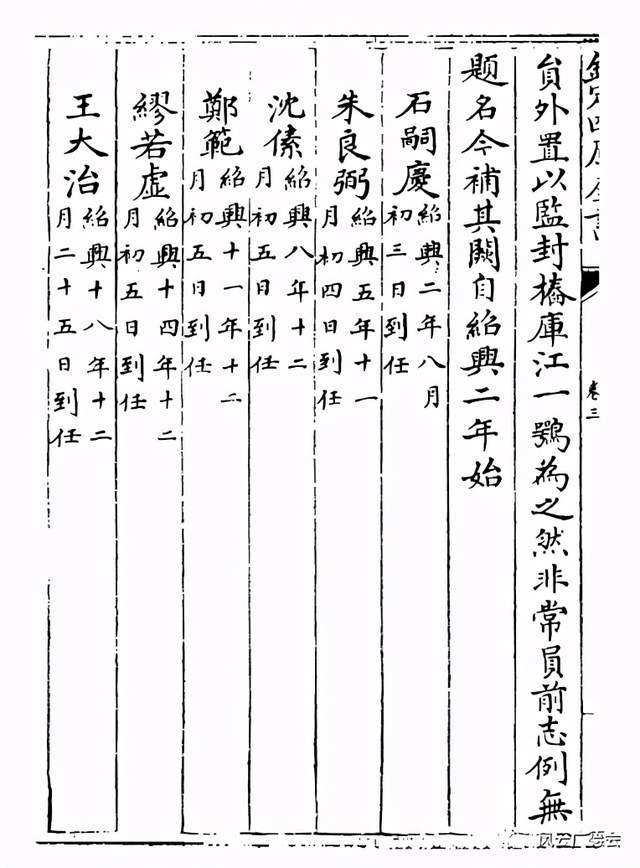 欽定四庫全書
卷三
貟外置以監封樁庫江一鶚為之然非常員前志例無
題名今補其闕自紹興二年始
石嗣慶紹興二年八月
初三日到任
朱良弼紹興五年十一
月初四日到任
沈㒋紹興八年十二
月初五日到任
鄭範紹興十一年十二
月初五日到任
繆若虚紹興十四年十二
月初五日到任
王大治紹興十八年十二
月二十五日到任